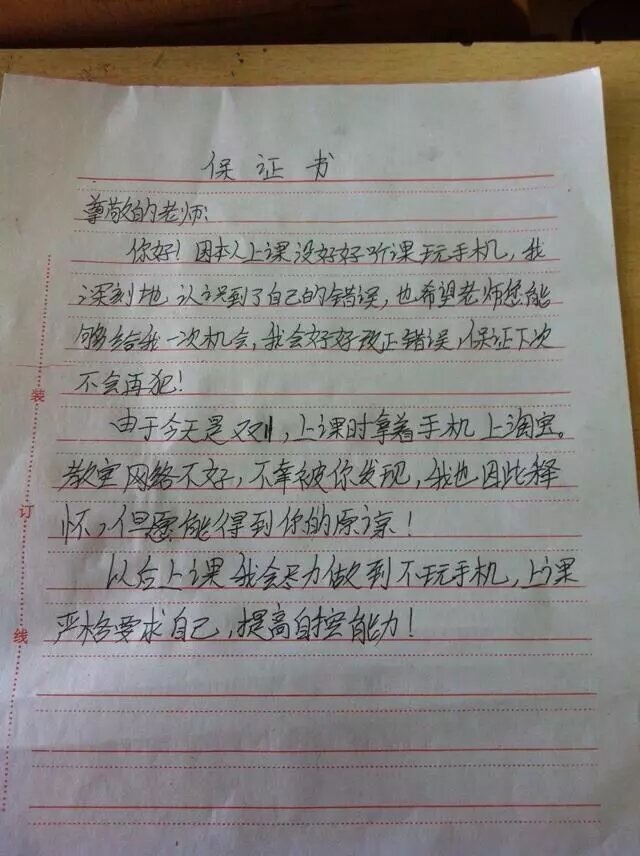 保证书
尊敬的老师:
你好!因本人上课没好好听课玩手机,我
深刻地认识到了自己的错误,也希望老师您能
够给我一次机会,我会好好改正错误,保证下次
不会再犯!
由于今天是双11,上课时拿着手机上淘宝。
教室网络不好,不幸被你发现,我也因此释
怀,但愿能得到你的原谅!
以后上课我会尽力做到不玩手机,上课
严格要求自己,提高自控能力!
装
订
线